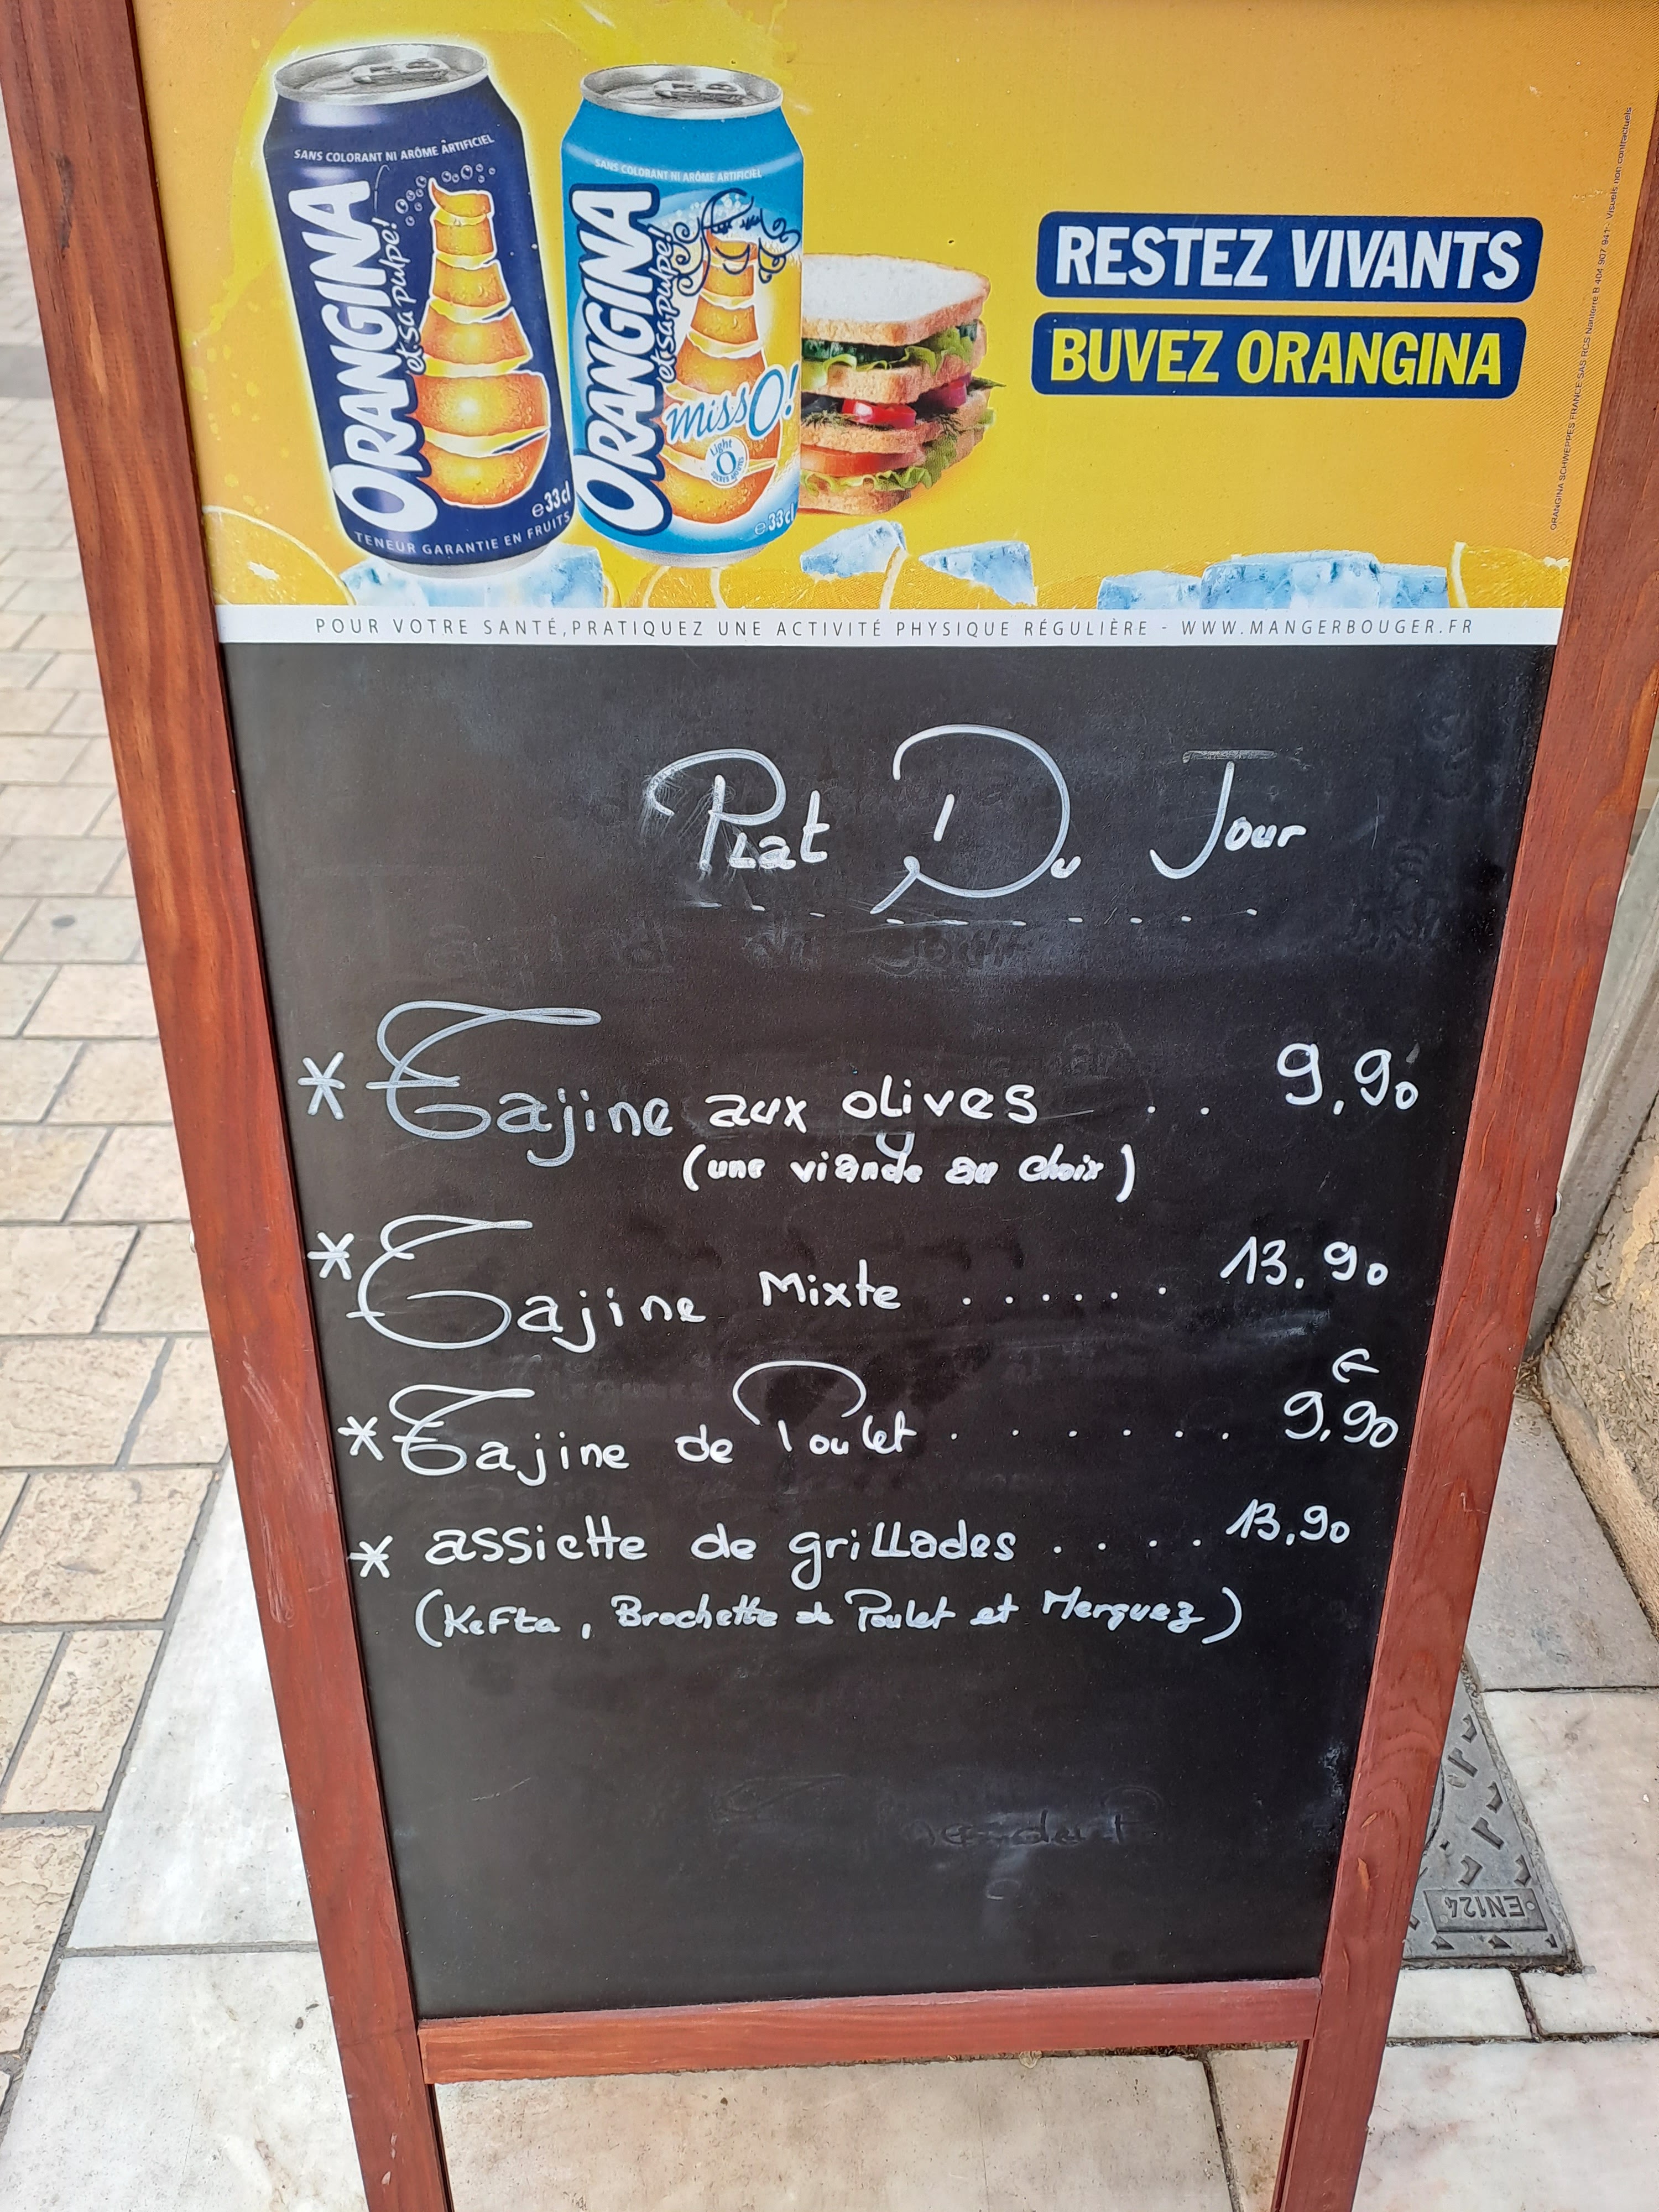 SANS COLORANT NI ARÔME ARTIFICIEL
ORANGINA
et sa pulpe!
e33cl
TENEUR GARANTIE EN FRUITS
SANS COLORANT NI ARÔME ARTIFICIEL
ORANGINA
et sa pulpe!
missO!
Light
0
SUCRES AJOUTÉS
e33cl
RESTEZ VIVANTS
BUVEZ ORANGINA
ORANGINA SCHWEPPES FRANCE SAS RCS Nanterre B 404 907 941 - Visuels non contractuels
POUR VOTRE SANTÉ, PRATIQUEZ UNE ACTIVITÉ PHYSIQUE RÉGULIÈRE - WWW.MANGERBOUGER.FR
Plat Du Jour
* Tajine aux olives . . 9,90
(une viande au choix)
* Tajine Mixte . . . . . . 13.90
€
* Tajine de Poulet . . . . . . 9,90
* assiette de grillades . . . . 13,90
(Kefta, Brochette de Poulet et Merguez)
EN124